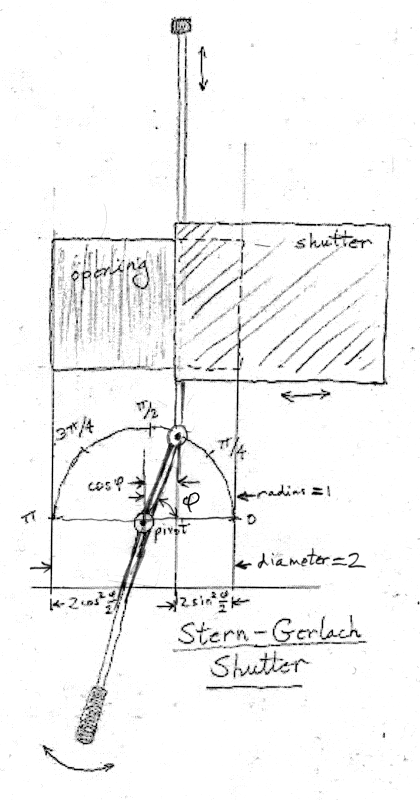 shutter
opening
π/2
3π/4
π/4
cosφ
φ
radius=1
π
0
pivot
diameter=2
2cos²φ/2
2sin²φ/2
Stern-Gerlach
Shutter